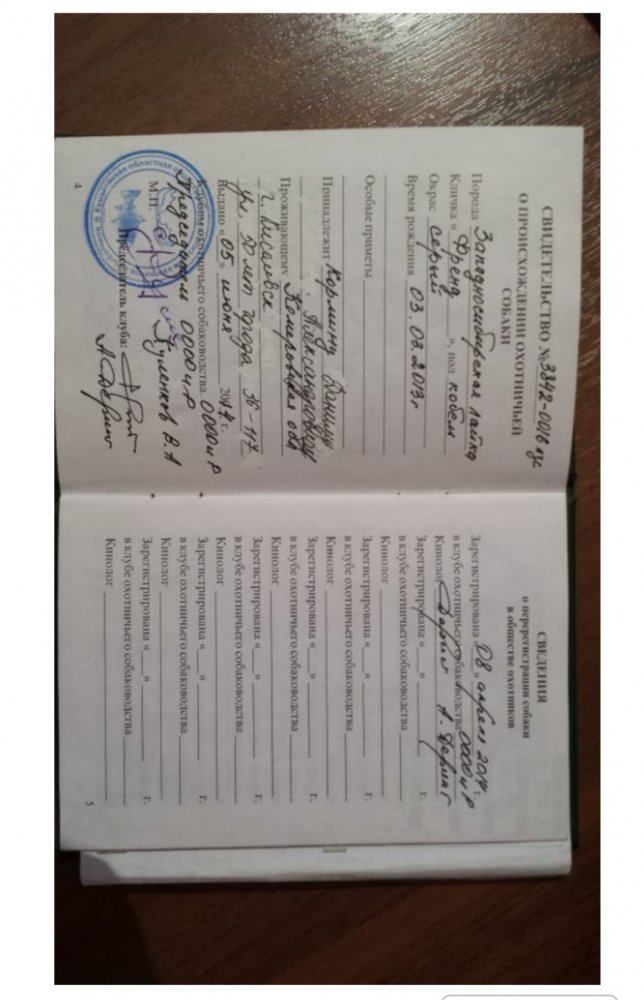 СВИДЕТЕЛЬСТВО № 3842-0016
О ПРОИСХОЖДЕНИИ ОХОТНИЧЬЕЙ
СОБАКИ
Порода Западносибирская лайка
Кличка « Френд », пол кобель
Окрас серый
Время рождения 03.03.2013г
Особые приметы
Принадлежит Кормину Данилу
Александровичу
Проживающему Кемеровская обл
г. Киселевск
ул. 50 лет города 38-117
Выдано «05» июня 2014 г.
Клубом охотничьего собаководства ООООиР
Председателем ООООиР
Куленков В.А
М.П.
Председатель клуба:
А. Деринг
4
СВЕДЕНИЯ
о перерегистрации собаки
в обществе охотников
Зарегистрирована 08» апреля 2014 г.
в клубе охотничьего собаководства ООООиР
Кинолог А. Деринг
Зарегистрирована «___» г.
в клубе охотничьего собаководства
Кинолог
Зарегистрирована «___» г.
в клубе охотничьего собаководства
Кинолог
Зарегистрирована «___» г.
в клубе охотничьего собаководства
Кинолог
Зарегистрирована «___» г.
в клубе охотничьего собаководства
Кинолог
Зарегистрирована «___» г.
в клубе охотничьего собаководства
Кинолог
Зарегистрирована «___» г.
в клубе охотничьего собаководства
Кинолог
5